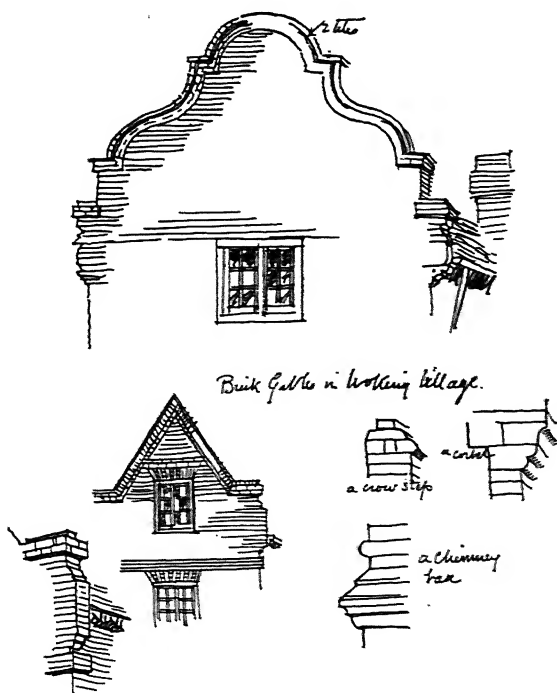 2 tiles
Brick Gables in Woking Village.
a crow step
a corbel
a chimney
base